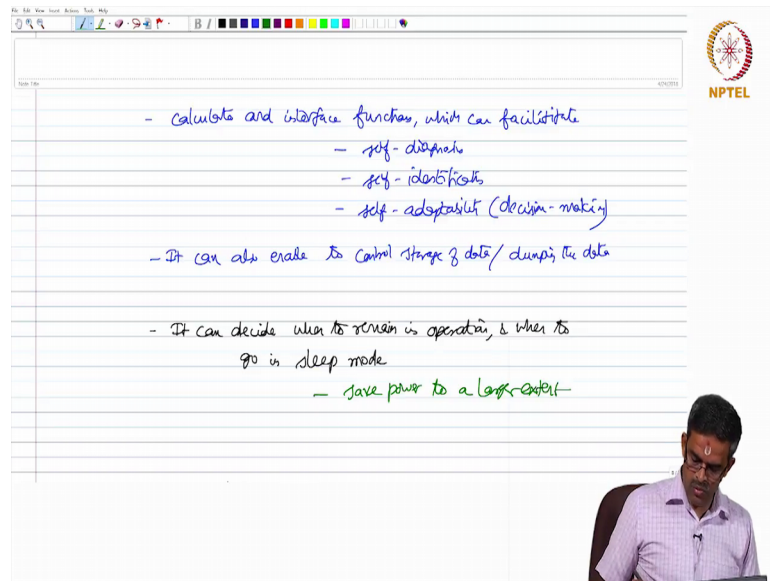 File Edit View Insert Actions Tools Help
B I
Note Title
4/24/2018
NPTEL
- Calculate and interface functions, which can facilitate
- self-diagnosis
- self-identification
- self-adaptability (decision-making)
- It can also enable to control storage of data/ dumping the data
- It can decide when to remain in operation, & when to
go in sleep mode
- save power to a larger extent